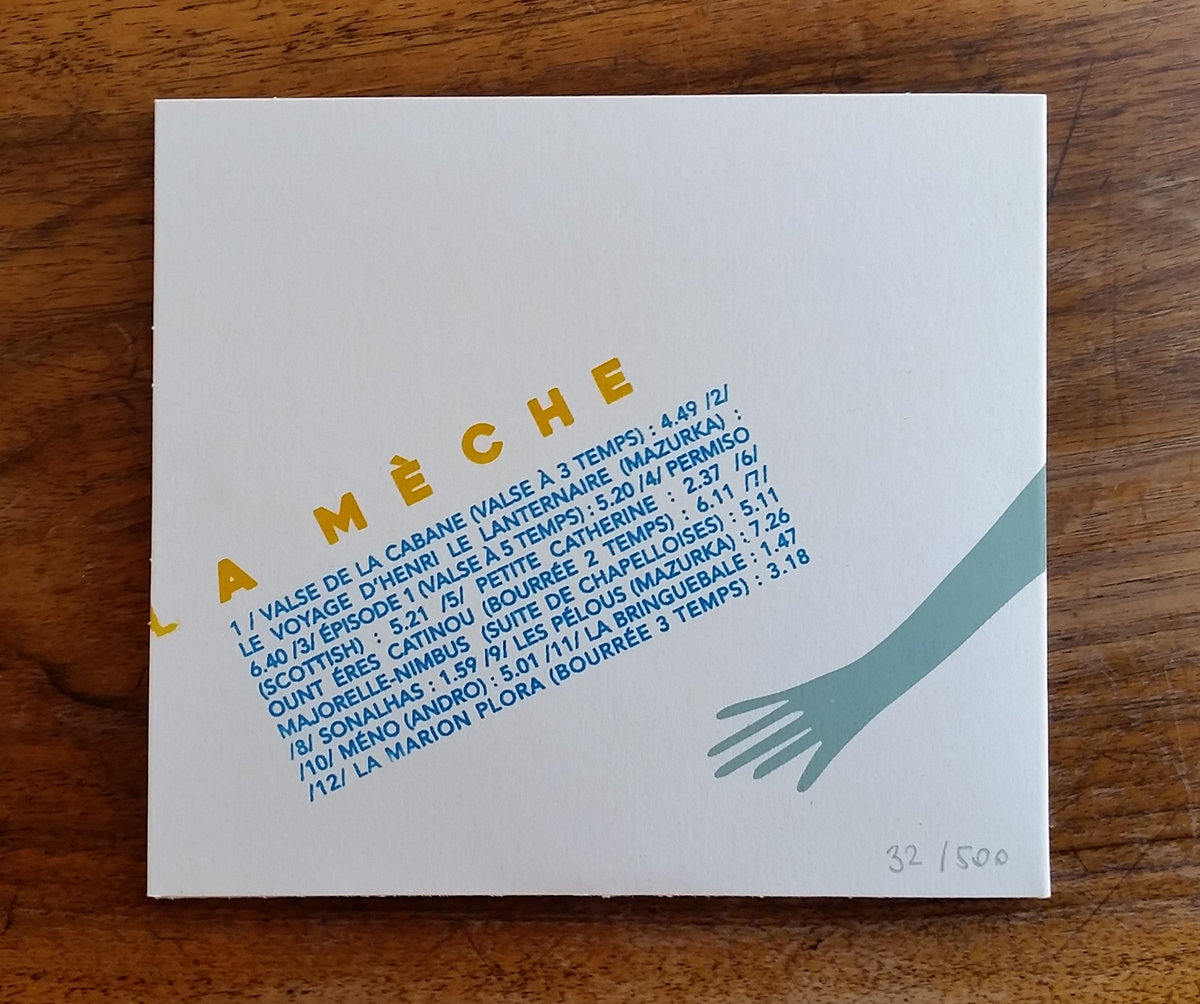 LA MÈCHE
1 / VALSE DE LA CABANE (VALSE À 3 TEMPS) : 4.49 /2/
LE VOYAGE D'HENRI LE LANTERNAIRE (MAZURKA) :
6.40 /3/ ÉPISODE 1 (VALSE À 5 TEMPS) : 5.20 /4/ PERMISO
(SCOTTISH) : 5.21 /5/ PETITE CATHERINE : 2.37 /6/
OUNT ÉRES CATINOU (BOURRÉE 2 TEMPS) : 6.11 /7/
MAJORELLE-NIMBUS (SUITE DE CHAPELLOISES) : 5.11
/8/ SONALHAS : 1.59 /9/ LES PÉLOUS (MAZURKA) : 7.26
/10/ MÉNO (ANDRO) : 5.01 /11/ LA BRINGUEBALE : 1.47
/12/ LA MARION PLORA (BOURRÉE 3 TEMPS) : 3.18
32 /500